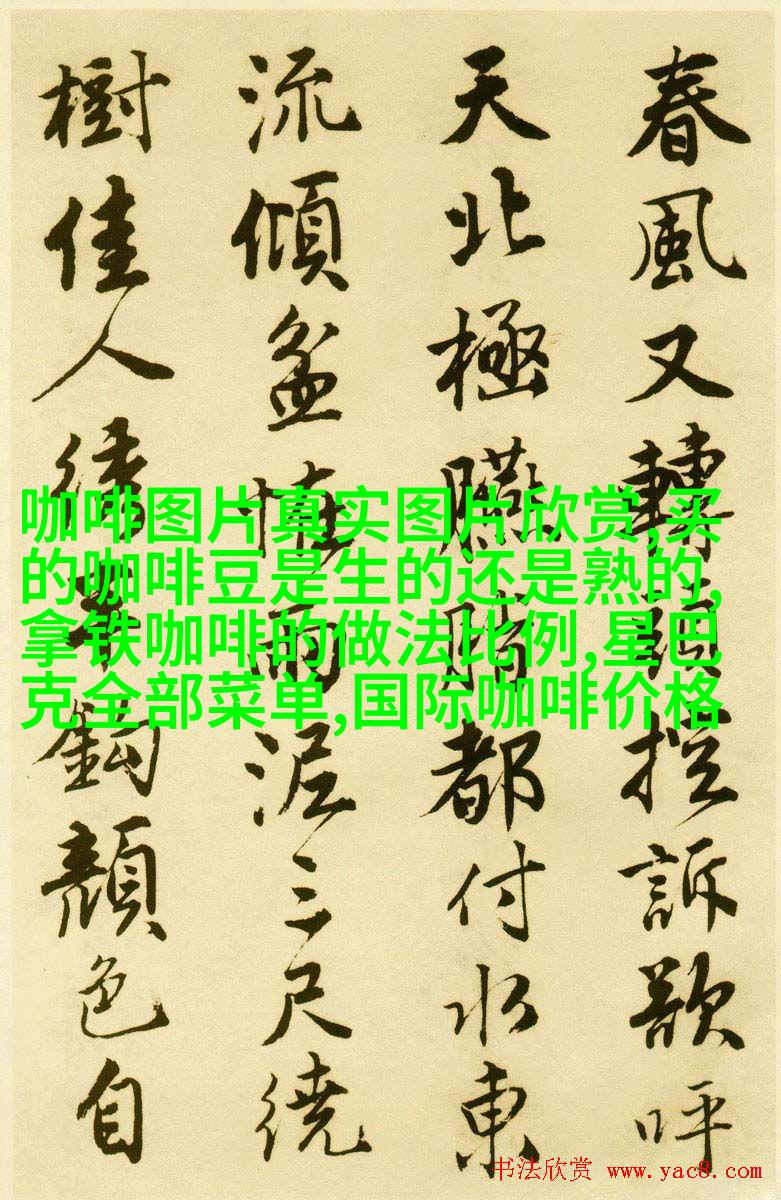 春風又轉頭控訴欲呼
天北極臙脂都付水東
流傾盆怪雨泥三尺繞
樹佳人繡半鉤顏色自
咖啡图片真实图片欣赏,买
的咖啡豆是生的还是熟的,
拿铁咖啡的做法比例,星巴
克全部菜单,国际咖啡价格
书法欣赏 www.yac8.com